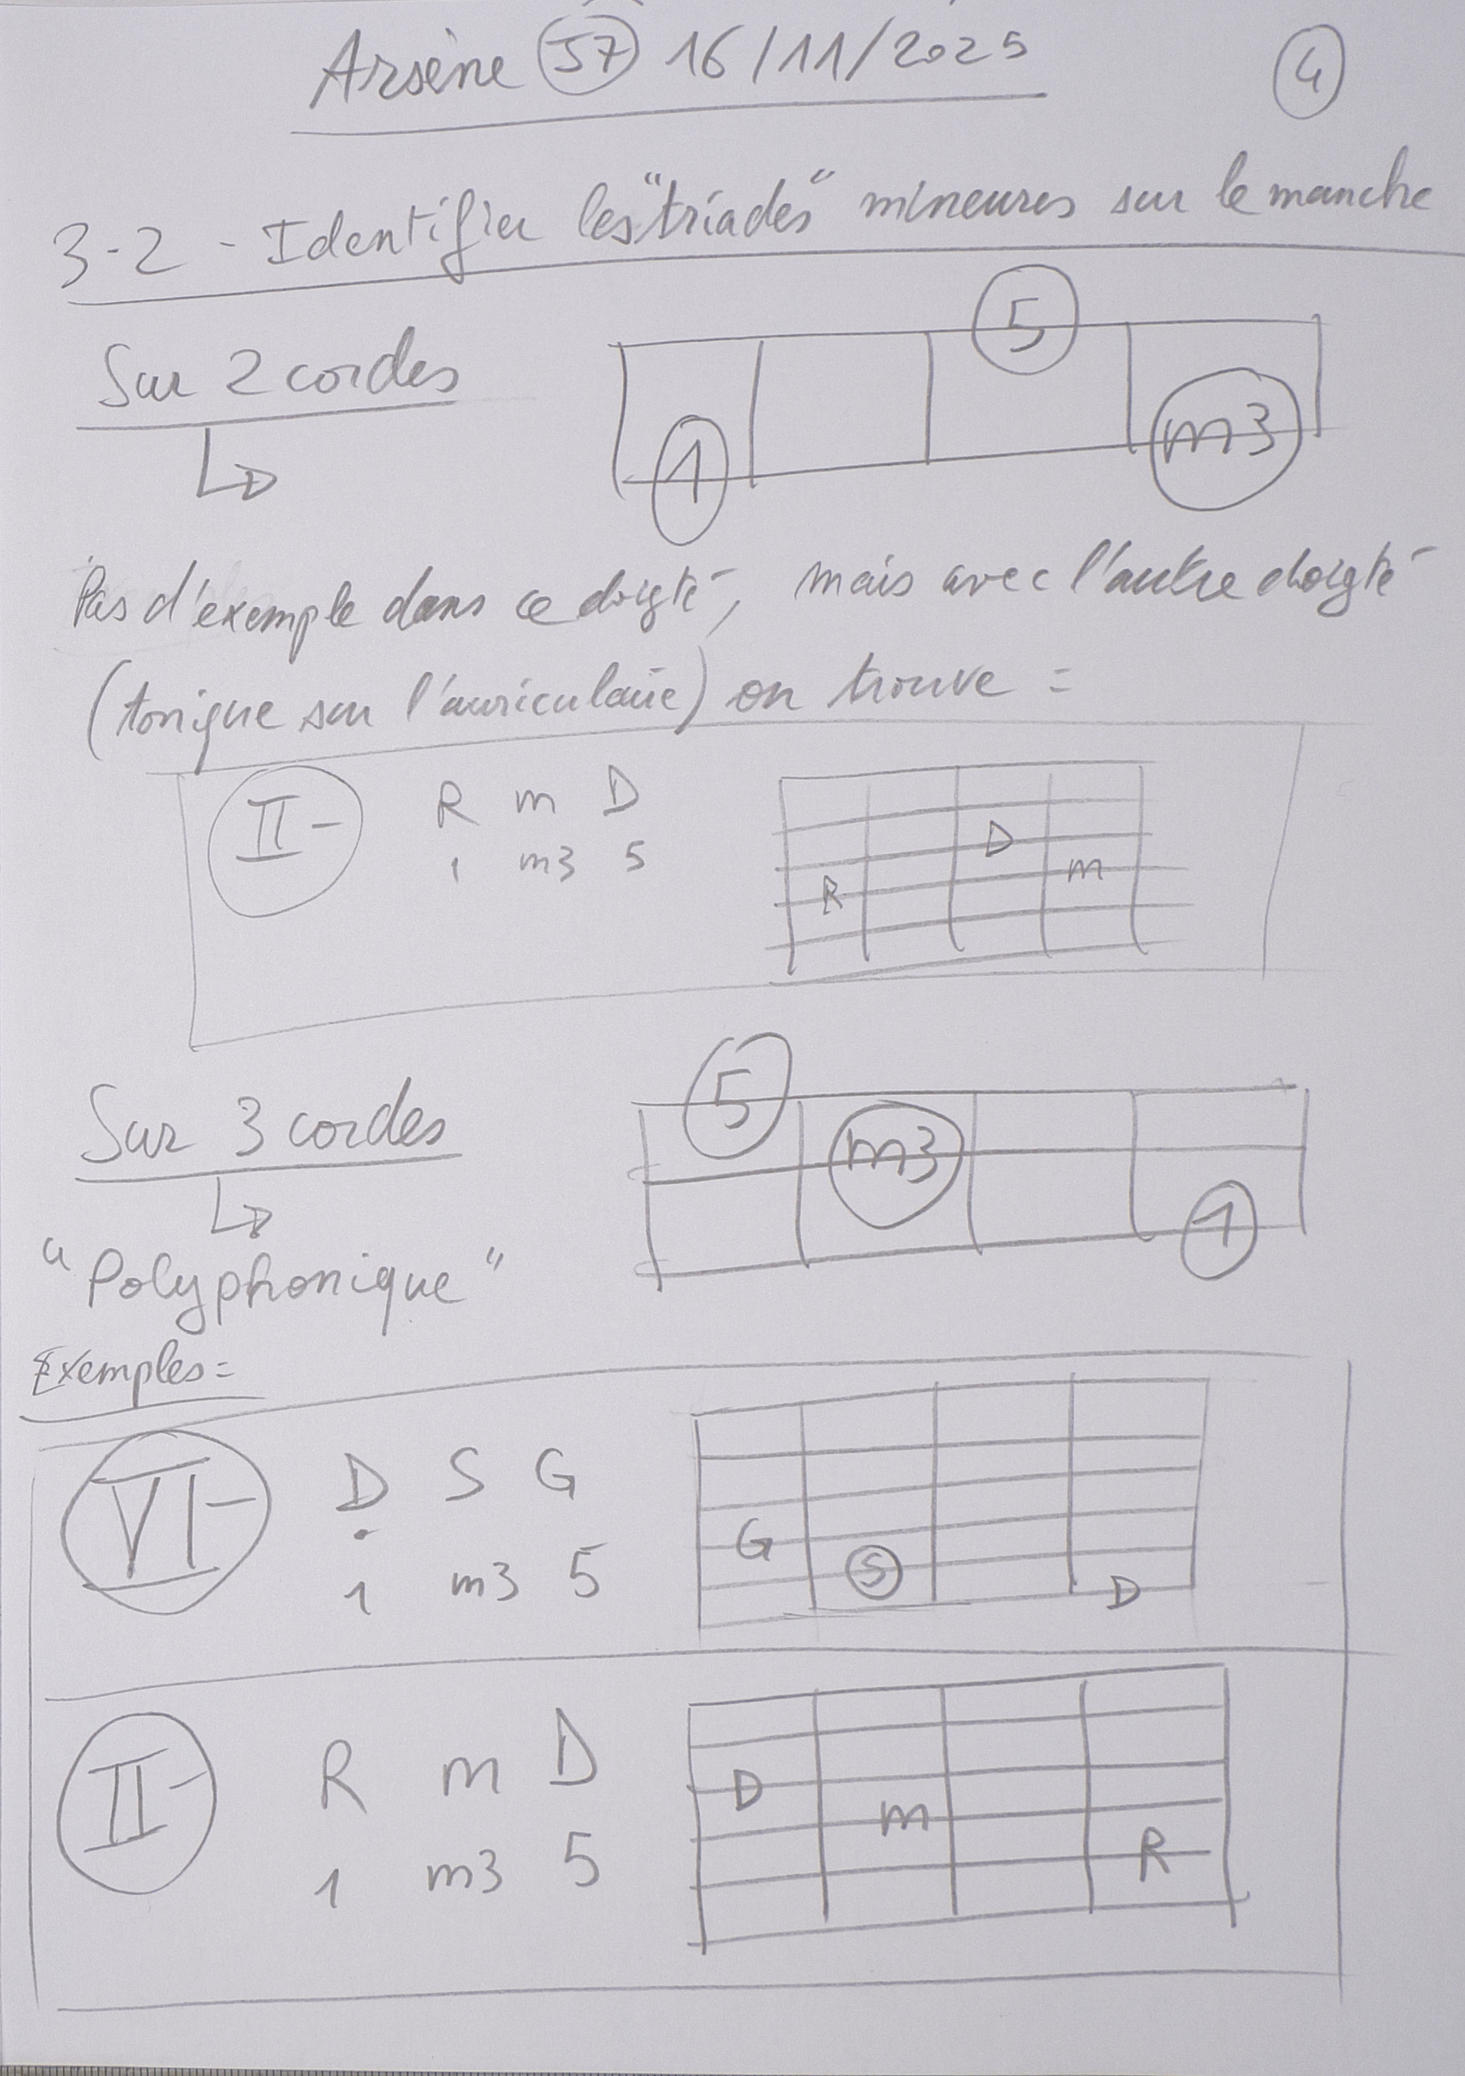 Arsène J7 16/11/2025 4
3-2 - Identifier les "triades" mineures sur le manche
Sur 2 cordes
5
1 m3
Pas d'exemple dans ce doigté, mais avec l'autre doigté
(tonique sur l'auriculaire) on trouve =
II- R m D
1 m3 5
D
R m
Sur 3 cordes
5 m3
1
"Polyphonique"
Exemples =
VI- D S G
1 m3 5
G S D
II- R m D
1 m3 5
D m R